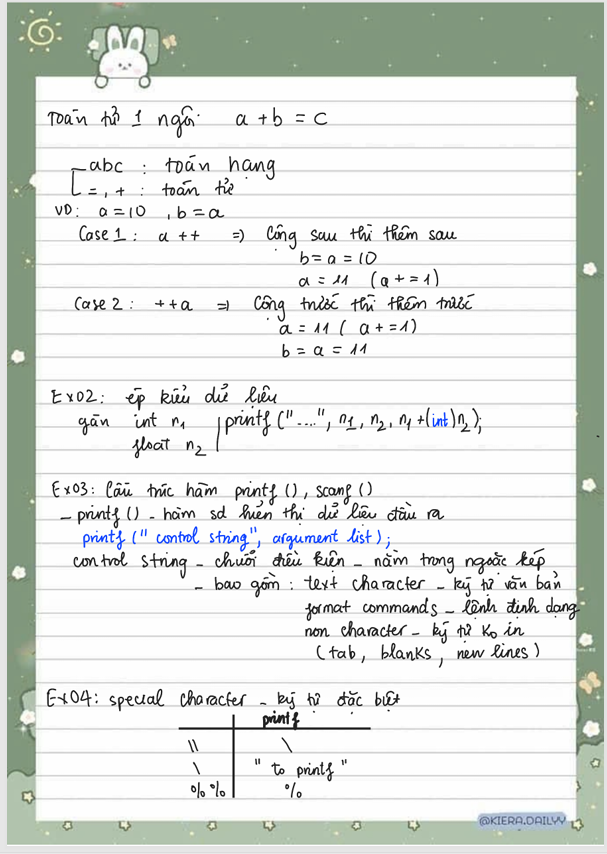 Toán tử 1 ngôi a + b = c
abc : toán hạng
= , + : toán tử
VD: a = 10 , b = a
Case 1 : a ++ => Cộng sau thì thêm sau
b = a = 10
a = 11 (a + = 1)
Case 2 : ++a => Cộng trước thì thêm trước
a = 11 ( a + = 1)
b = a = 11
Ex02: ép kiểu dữ liệu
gán int n1 | printf ("....", n1, n2, n1 +(int)n2);
float n2
Ex03: Cấu trúc hàm printf () , scanf ()
_ printf () _ hàm sd hiển thị dữ liệu đầu ra
printf (" control string", argument list) ;
control string _ chuỗi điều kiện _ nằm trong ngoặc kép
_ bao gồm : text character _ ký tự văn bản
format commands _ lệnh định dạng
non character _ ký tự ko in
( tab , blanks , new lines )
Ex04: special character _ ký tự đặc biệt
printf
\\ \
\ " to printf "
%% %
@KIERA.DAILYY